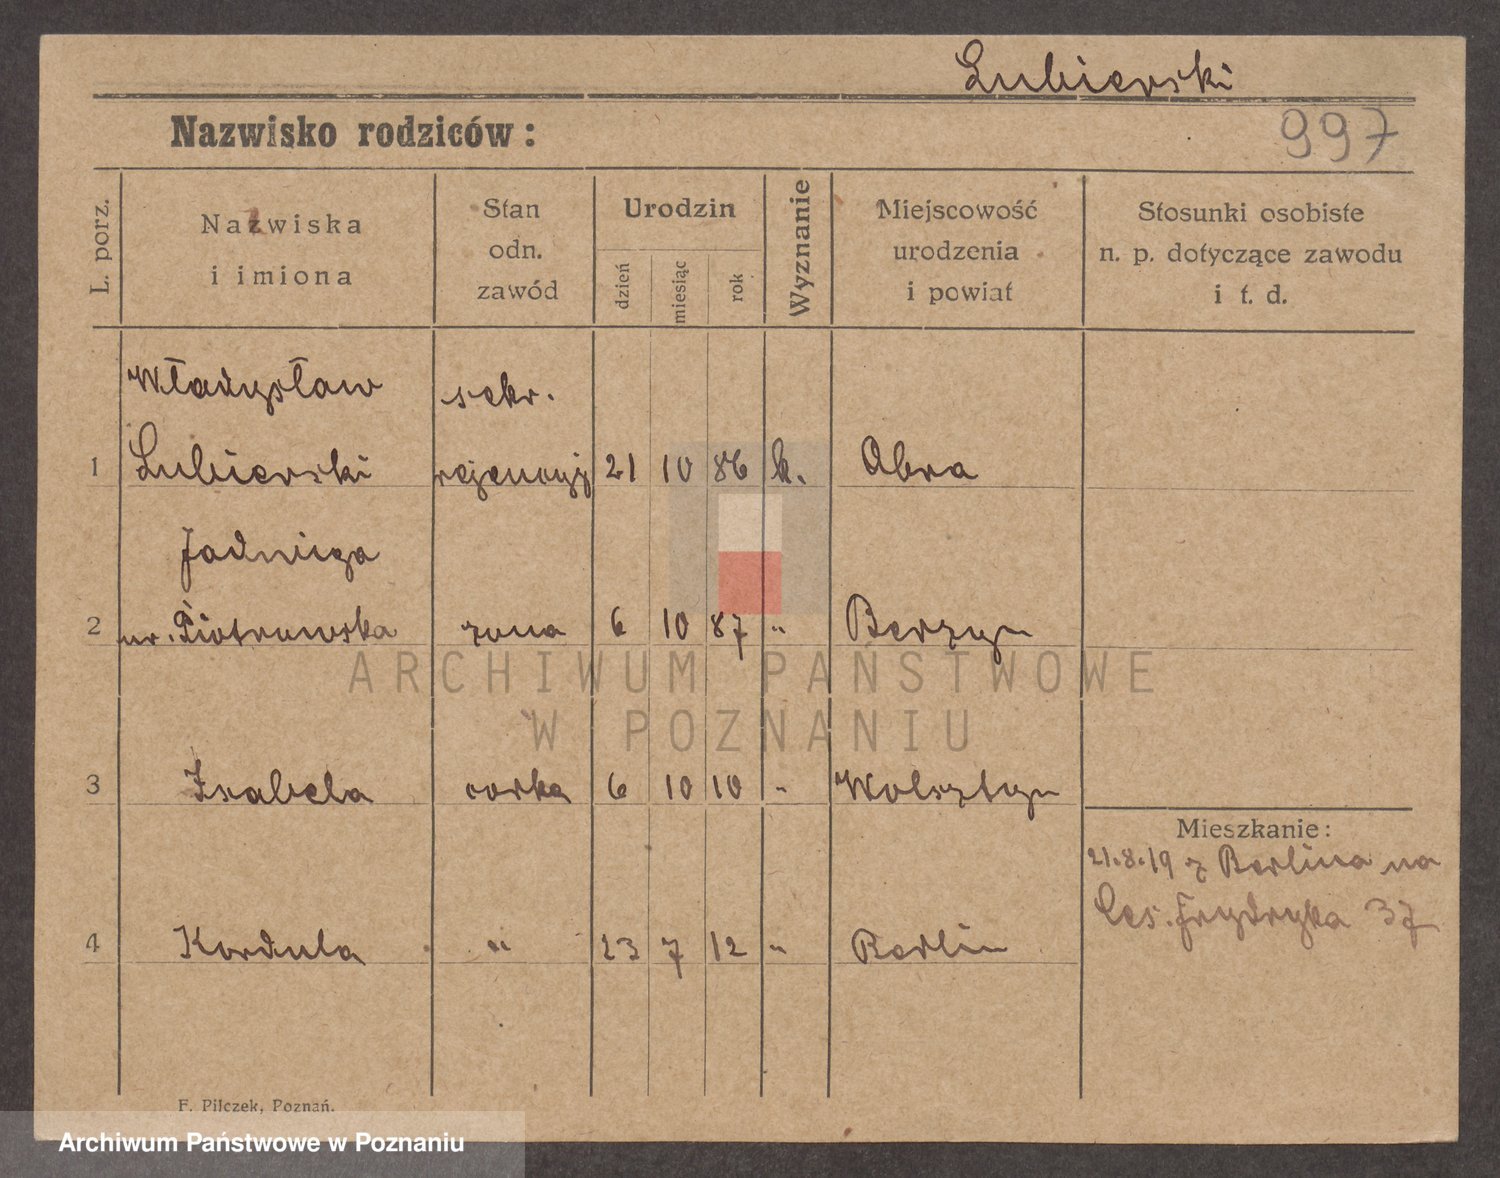 Lubierski
Nazwisko rodziców:
997
L. porz.
Nazwiska
i imiona
Stan
odn.
zawód
Urodzin
dzień
miesiąc
rok
Wyznanie
Miejscowość
urodzenia
i powiat
Stosunki osobiste
n. p. dotyczące zawodu
i t. d.
Władysław sekr.
1 Lubierski rejencyj 21 10 86 k. Obra
Jadwiga
2 ur. Piotrowska żona 6 10 87 " Berzyn
ARCHIWUM PAŃSTWOWE
W POZNANIU
3 Izabela córka 6 10 10 " Wolsztyn
Mieszkanie:
21.8.19 z Berlina na
Ces. Frydryka 37
4 Kordula " 23 7 12 " Berlin
F. Pilczek, Poznań.
Archiwum Państwowe w Poznaniu